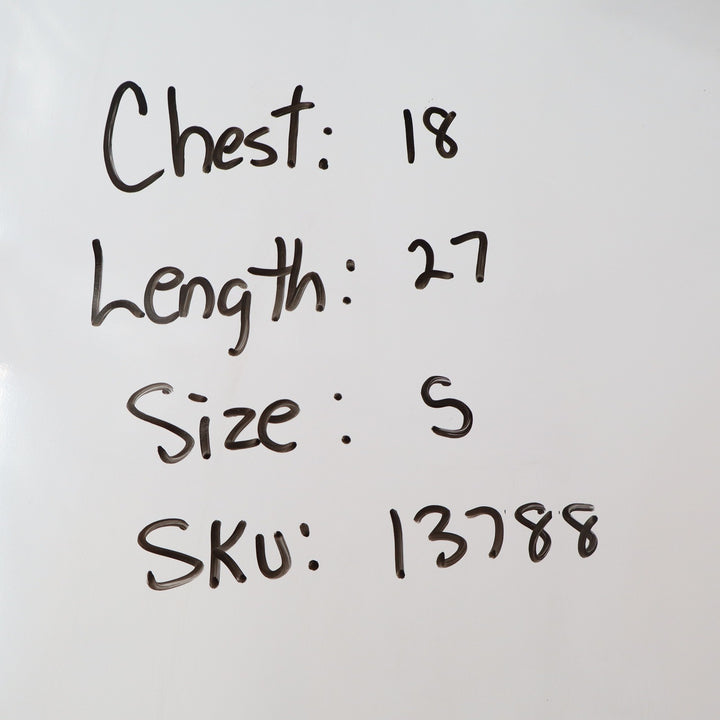 Chest: 18
Length: 27
Size: S
SKU: 13788